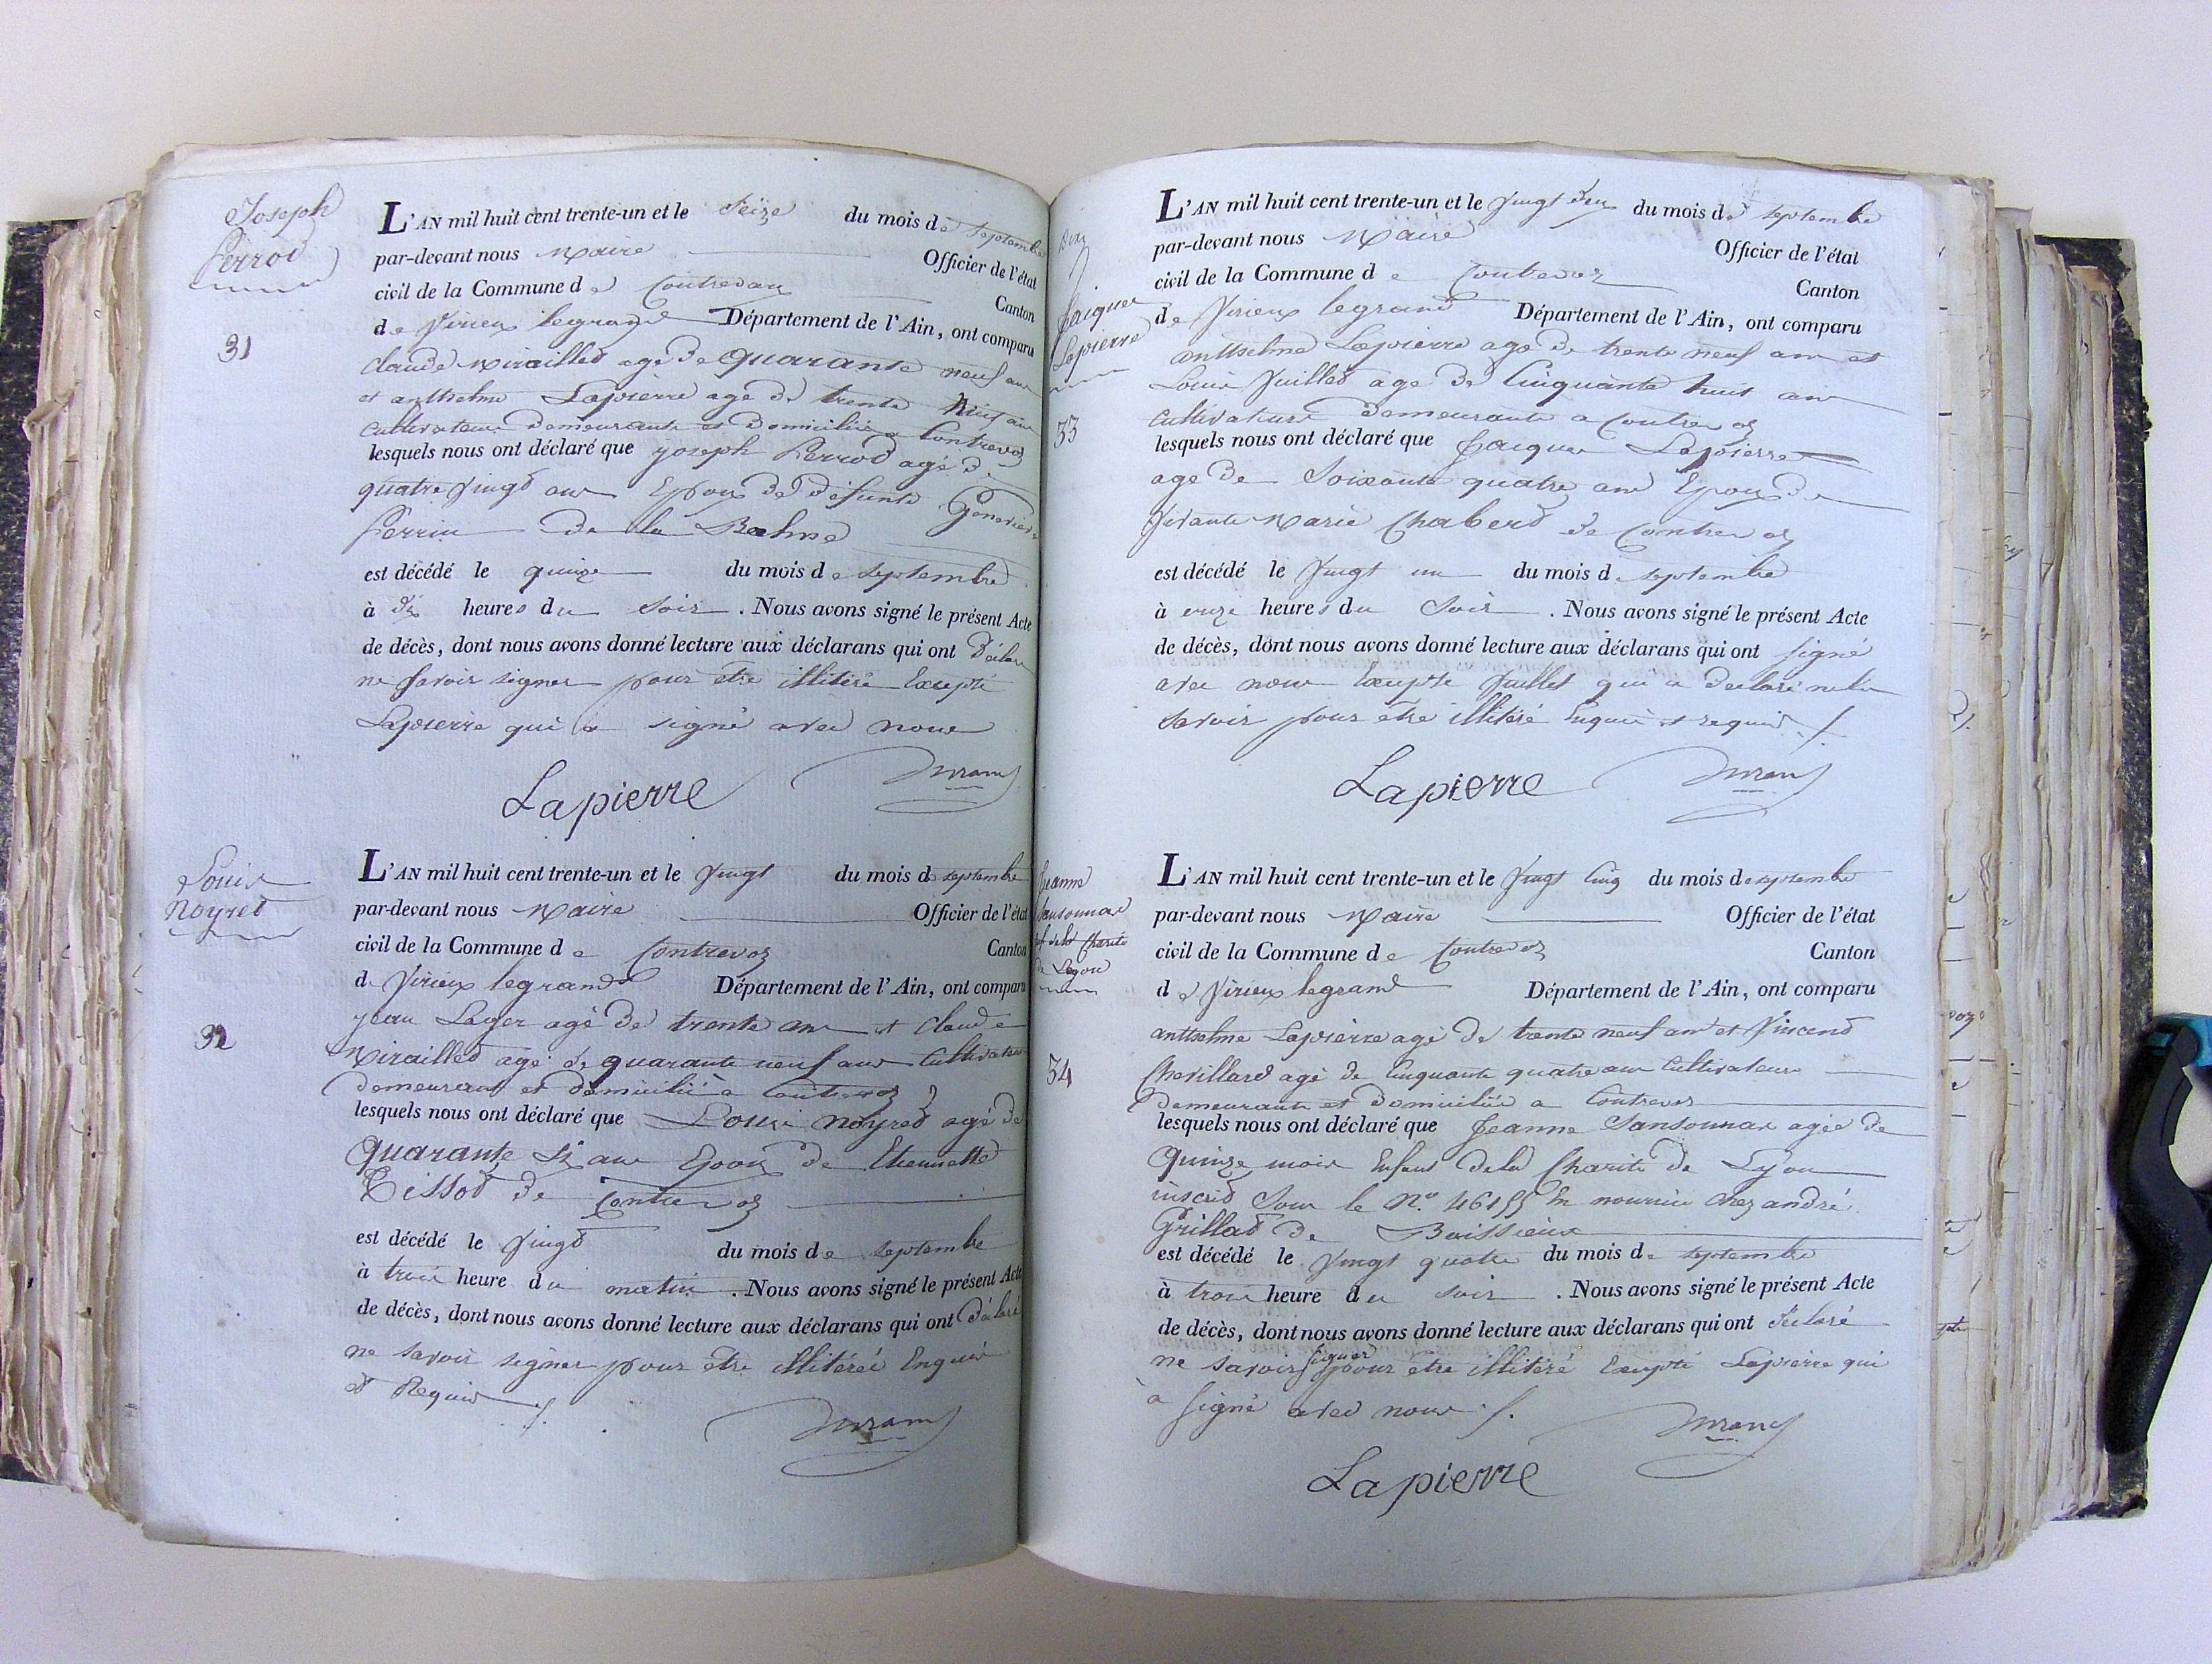 Joseph
Perrod
31
L'AN mil huit cent trente-un et le Seize du mois de septembre
par-devant nous Maire Officier de l'état
civil de la Commune de Contrevau Canton
de Virieux legrand Département de l'Ain, ont comparu
claude Mirailled agé de quarante neuf ans
et anthelme Lapierre agé de trente neuf an
cultivateurs demeurants et domiciliés a Contrevoz
lesquels nous ont déclaré que yoseph Perrod agé de
quatre vingd ans Epoux de défunte Geneviève
Perrin de la Balme
est décédé le quinze du mois de septembre
à dix heures du soir. Nous avons signé le présent Acte
de décès, dont nous avons donné lecture aux déclarans qui ont Déclaré
ne savoir signer pour etre illitéré Excepté
Lapierre qui a signé avec nous
Lapierre Durand
Louis
Noyred
32
L'AN mil huit cent trente-un et le vingt du mois de septembre
par-devant nous Maire Officier de l'état
civil de la Commune de Contrevoz Canton
de Virieux legrand Département de l'Ain, ont comparu
yean Layer agé de trente ans et claude
Mirailled agé de quarante neuf ans cultivateurs
demeurant et domicilié à Contrevoz
lesquels nous ont déclaré que Louis Noyred agé de
quarante six ans Epoux de Etiennette
Tissod de Contrevoz
est décédé le vingd du mois de septembre
à trois heure du matin. Nous avons signé le présent Acte
de décès, dont nous avons donné lecture aux déclarans qui ont Déclaré
ne savoir signer pour etre illitérés Enquis
et Requis ./.
Durand
Jacques
Lapierre
33
L'AN mil huit cent trente-un et le vingt deux du mois de septembre
par-devant nous Maire Officier de l'état
civil de la Commune de Contrevoz Canton
de Virieux legrand Département de l'Ain, ont comparu
antthelme Lapierre age de trente neuf ans et
Louis Juilled age de Cinquante huit ans
cultivateurs demeurants a Contrevoz
lesquels nous ont déclaré que Jacques Lapierre
age de Soixante quatre ans Epoux de
vivante Marie Chaberd de Contrevoz
est décédé le vingt un du mois de septembre
à onze heures du Soir. Nous avons signé le présent Acte
de décès, dont nous avons donné lecture aux déclarans qui ont signé
avec nous Excepte Juillet qui a declaré ne le
savoir pour etre illitéré Enquis et requis ./.
Lapierre Durand
Jeanne
Sansounar
enf de la Charité
de Lyon
34
L'AN mil huit cent trente-un et le vingt Cinq du mois de septembre
par-devant nous Maire Officier de l'état
civil de la Commune de Contrevoz Canton
de Virieux legrand Département de l'Ain, ont comparu
antthelme Lapierre agé de trente neuf an et Vincend
Chevillard agé de Cinquante quatre ans Cultivateurs
demeurants et domiciliés a Contrevoz
lesquels nous ont déclaré que Jeanne Sansounar agée de
quinze mois Enfant dela Charité de Lyon
inscrid Sous le N.º 46155 En nourrice chez andré
Grillad de Boissieux
est décédé le vingt quatre du mois de septembre
à trois heure du soir. Nous avons signé le présent Acte
de décès, dont nous avons donné lecture aux déclarans qui ont déclaré
ne savoir signer pour etre illitéré Excepté Lapierre qui
à signé avec nous ./.
Durand
Lapierre